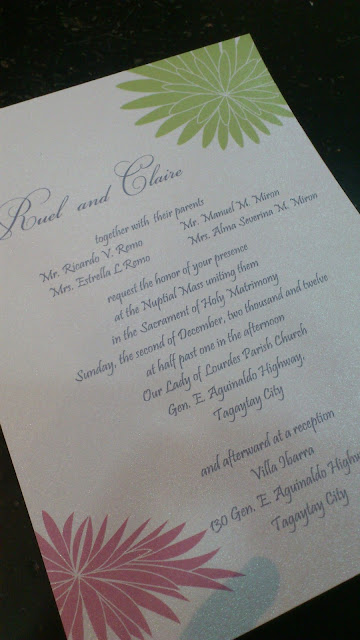 Ruel and Claire
together with their parents
Mr. Ricardo V. Remo Mr. Manuel M. Miron
Mrs. Estrella L. Remo Mrs. Alma Severina M. Miron
request the honor of your presence
at the Nuptial Mass uniting them
in the Sacrament of Holy Matrimony
Sunday, the second of December, two thousand and twelve
at half past one in the afternoon
Our Lady of Lourdes Parish Church
Gen. E. Aguinaldo Highway,
Tagaytay City
and afterward at a reception
Villa Ibarra
130 Gen. E. Aguinaldo Highw
Tagaytay City